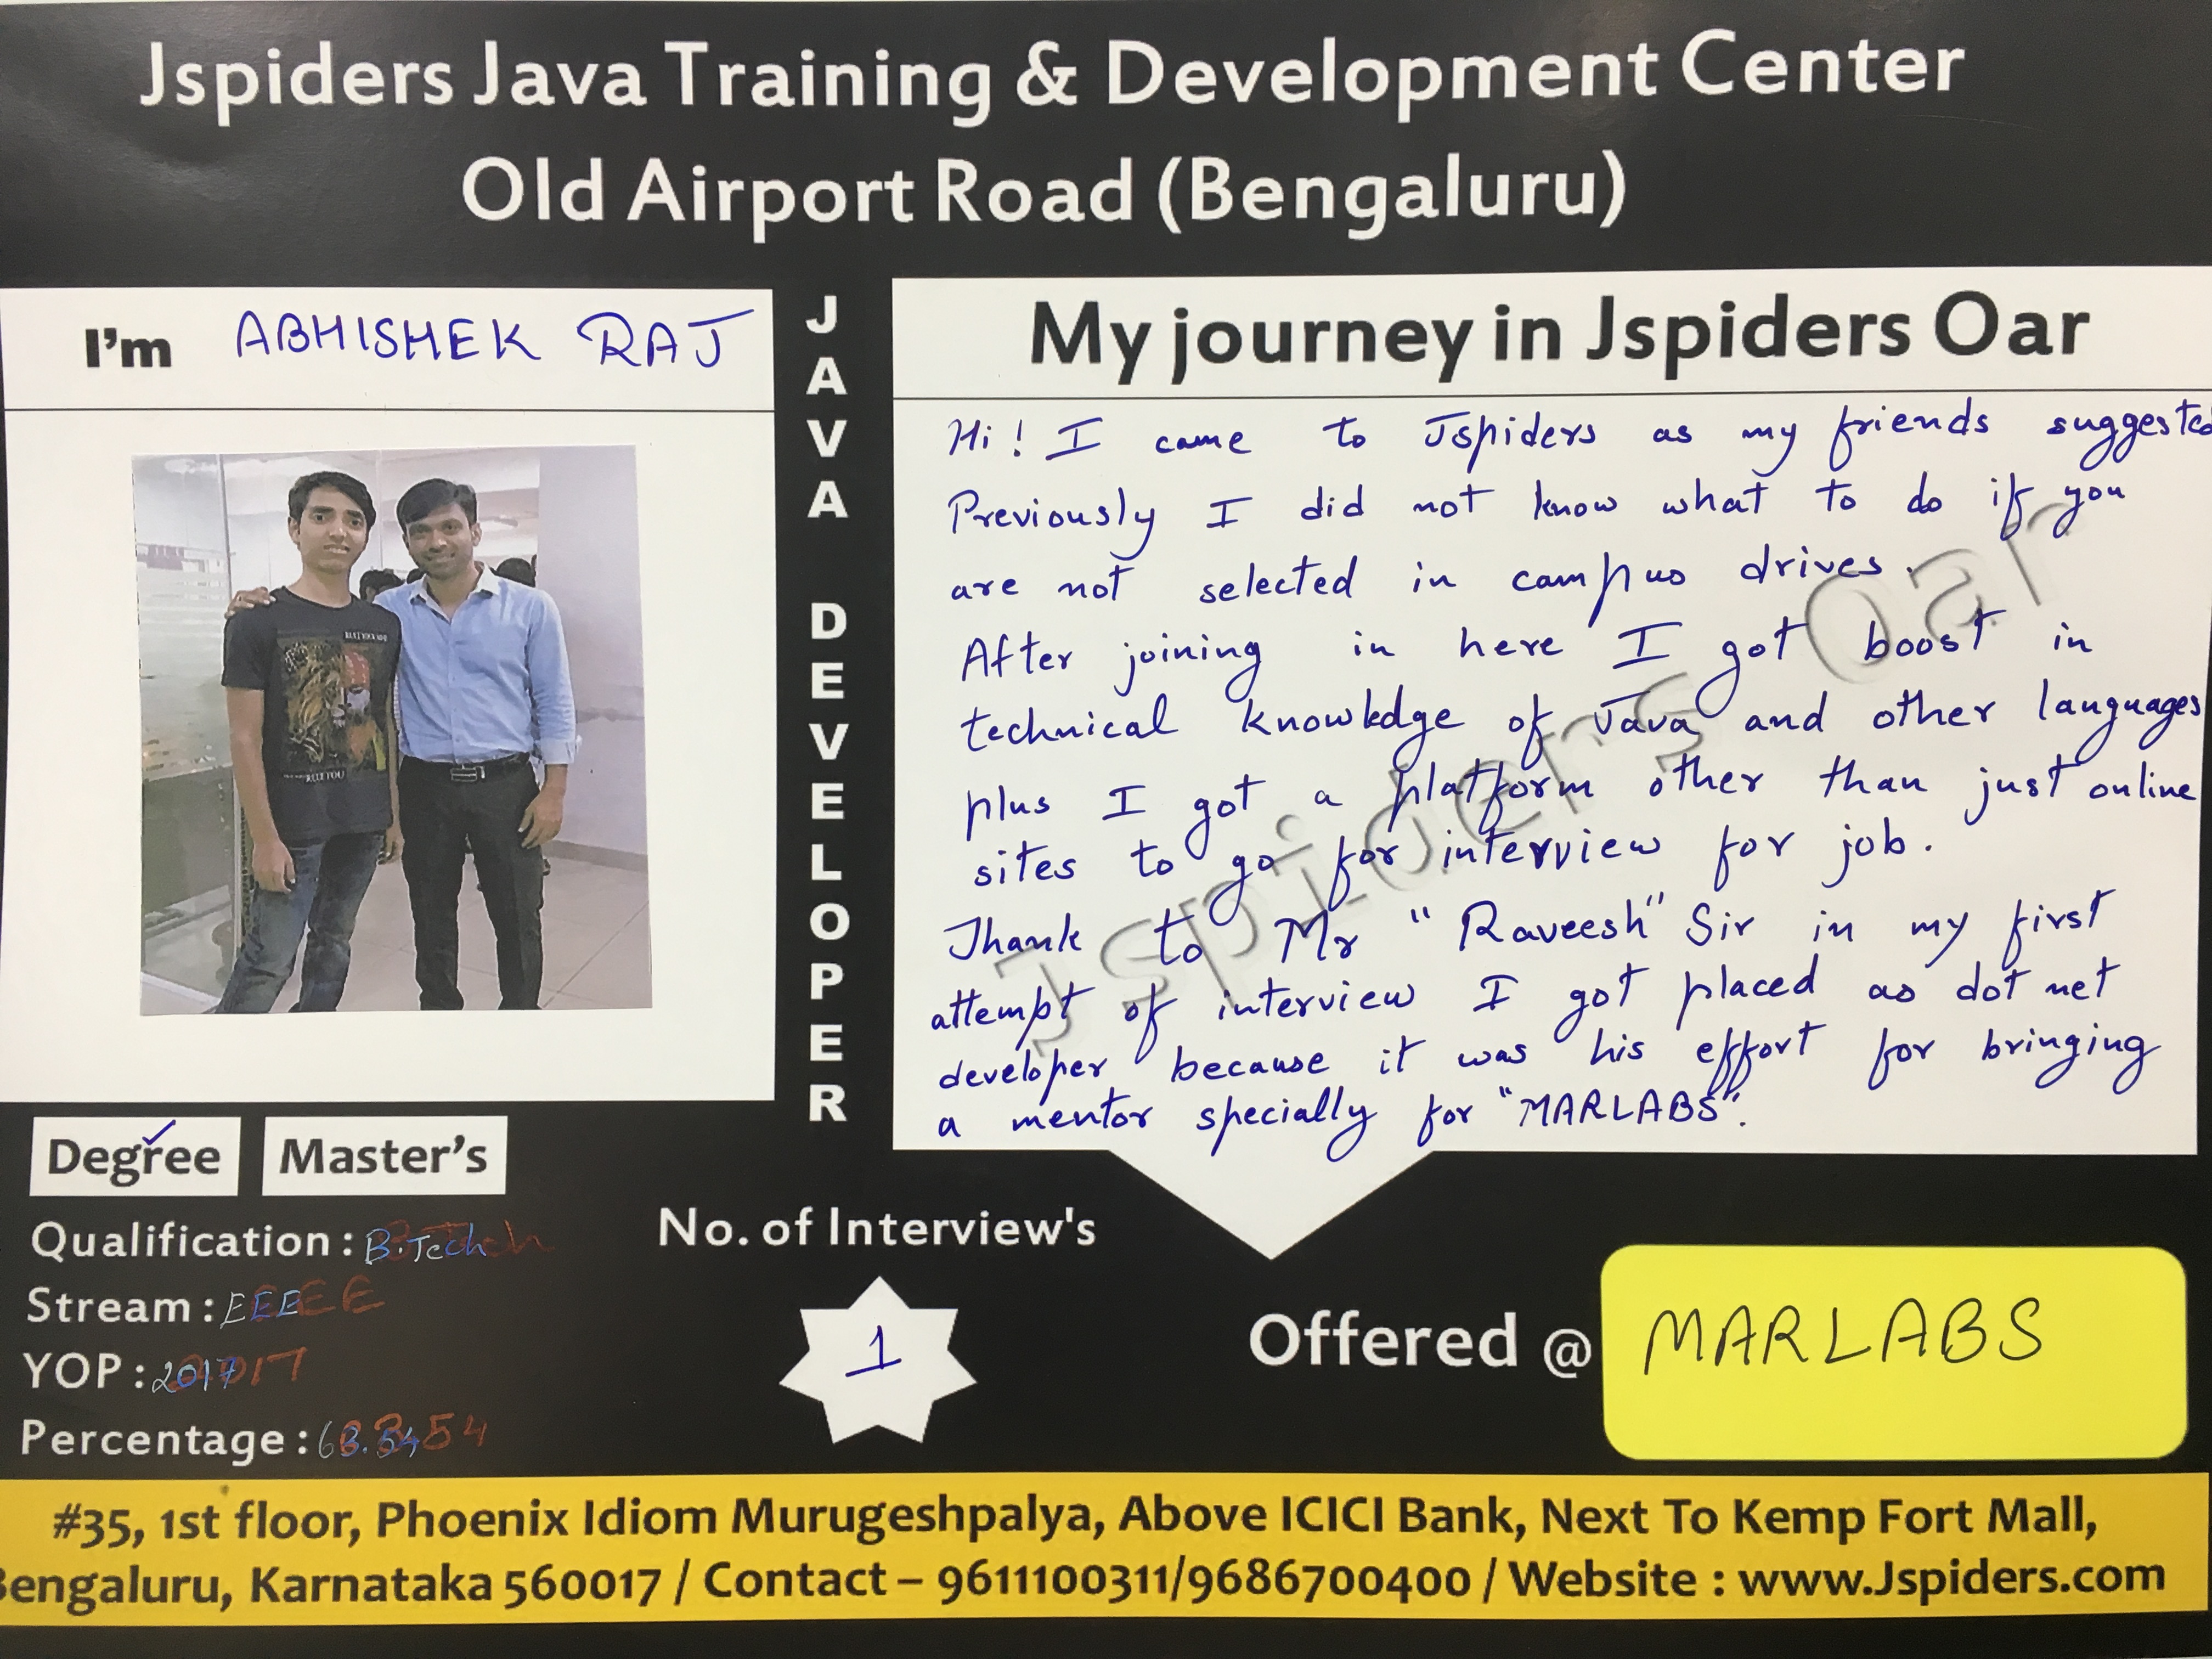 Jspiders Java Training & Development Center
Old Airport Road (Bengaluru)
I'm ABHISHEK RAJ
JAVA DEVELOPER
My journey in Jspiders Oar
Hi! I came to Jspiders as my friends suggested
Previously I did not know what to do if you
are not selected in campus drives.
After joining in here I got boost in
technical knowledge of Java and other languages
plus I got a platform other than just online
sites to go for interview for job.
Thank to Mr "Raveesh" Sir in my first
attempt of interview I got placed as dot net
developer because it was his effort for bringing
a mentor specially for "MARLABS".
Jspiders Oar
Degree Master's
Qualification : B.Tech
Stream : EEE
YOP : 2017
Percentage :
No. of Interview's
1
Offered @ MARLABS
#35, 1st floor, Phoenix Idiom Murugeshpalya, Above ICICI Bank, Next To Kemp Fort Mall,
Bengaluru, Karnataka 560017 / Contact – 9611100311/9686700400 / Website : www.Jspiders.com